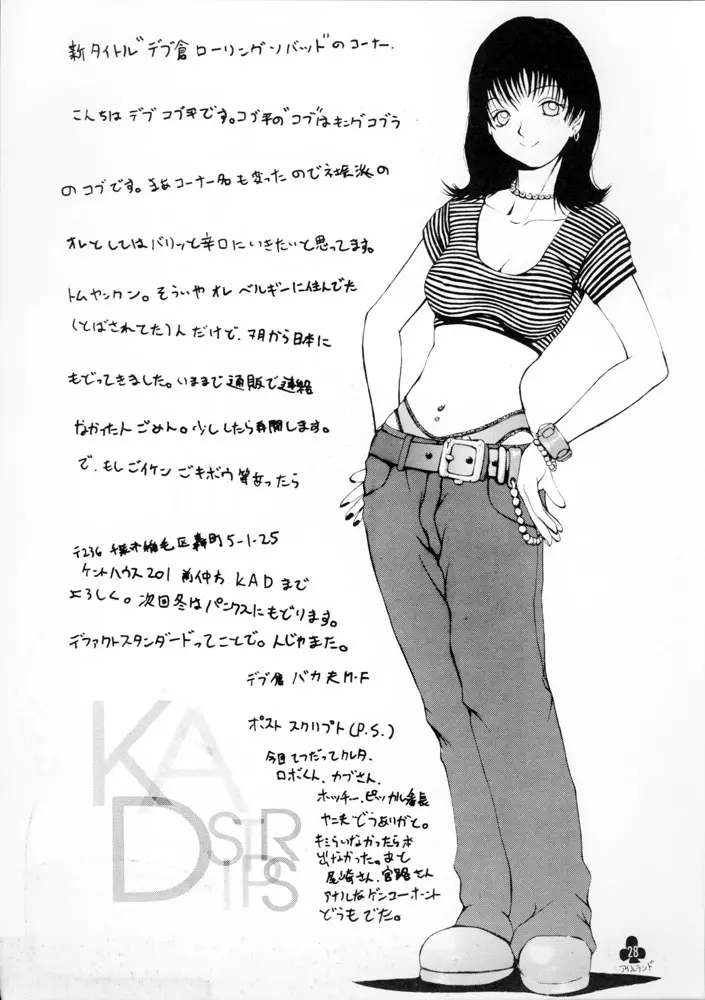 新タイトル"デブ倉ローリングソバッド"のコーナー.
こんちは デブ コブ平です。コブ平の"コブ"はキングコブラ
のコブです。まあコーナー名も変ったので 派の
オレとしてはバリッと辛口にいきたいと思ってます。
トムヤンクン。そういや オレ ベルギーに住んでた
(とばされてた)人だけで、7月から日本に
もどってきました。いままで通販で連絡
なかった人ごめん。少ししたら再開します。
で、もしごイケン ごキボウ等あったら
〒236 区 町5-1-25
ケントハウス201 KADまで
よろしく。次回冬はパンクスにもどります。
デファクトスタンダードってことで。んじゃまた。
デブ倉 バカ夫M-F
ポスト スクリプト(P.S.)
今回てつだってクレタ
ロボくん、カブさん、
ホッチー、ピッカル番長
ヤニ夫どうありがと。
キミらいなかったら本
出なかった。あと
尾崎さん、宮路さん
アナルなゲンコーホント
どうもでた。
KAD
STRIPS
28
アイルランド